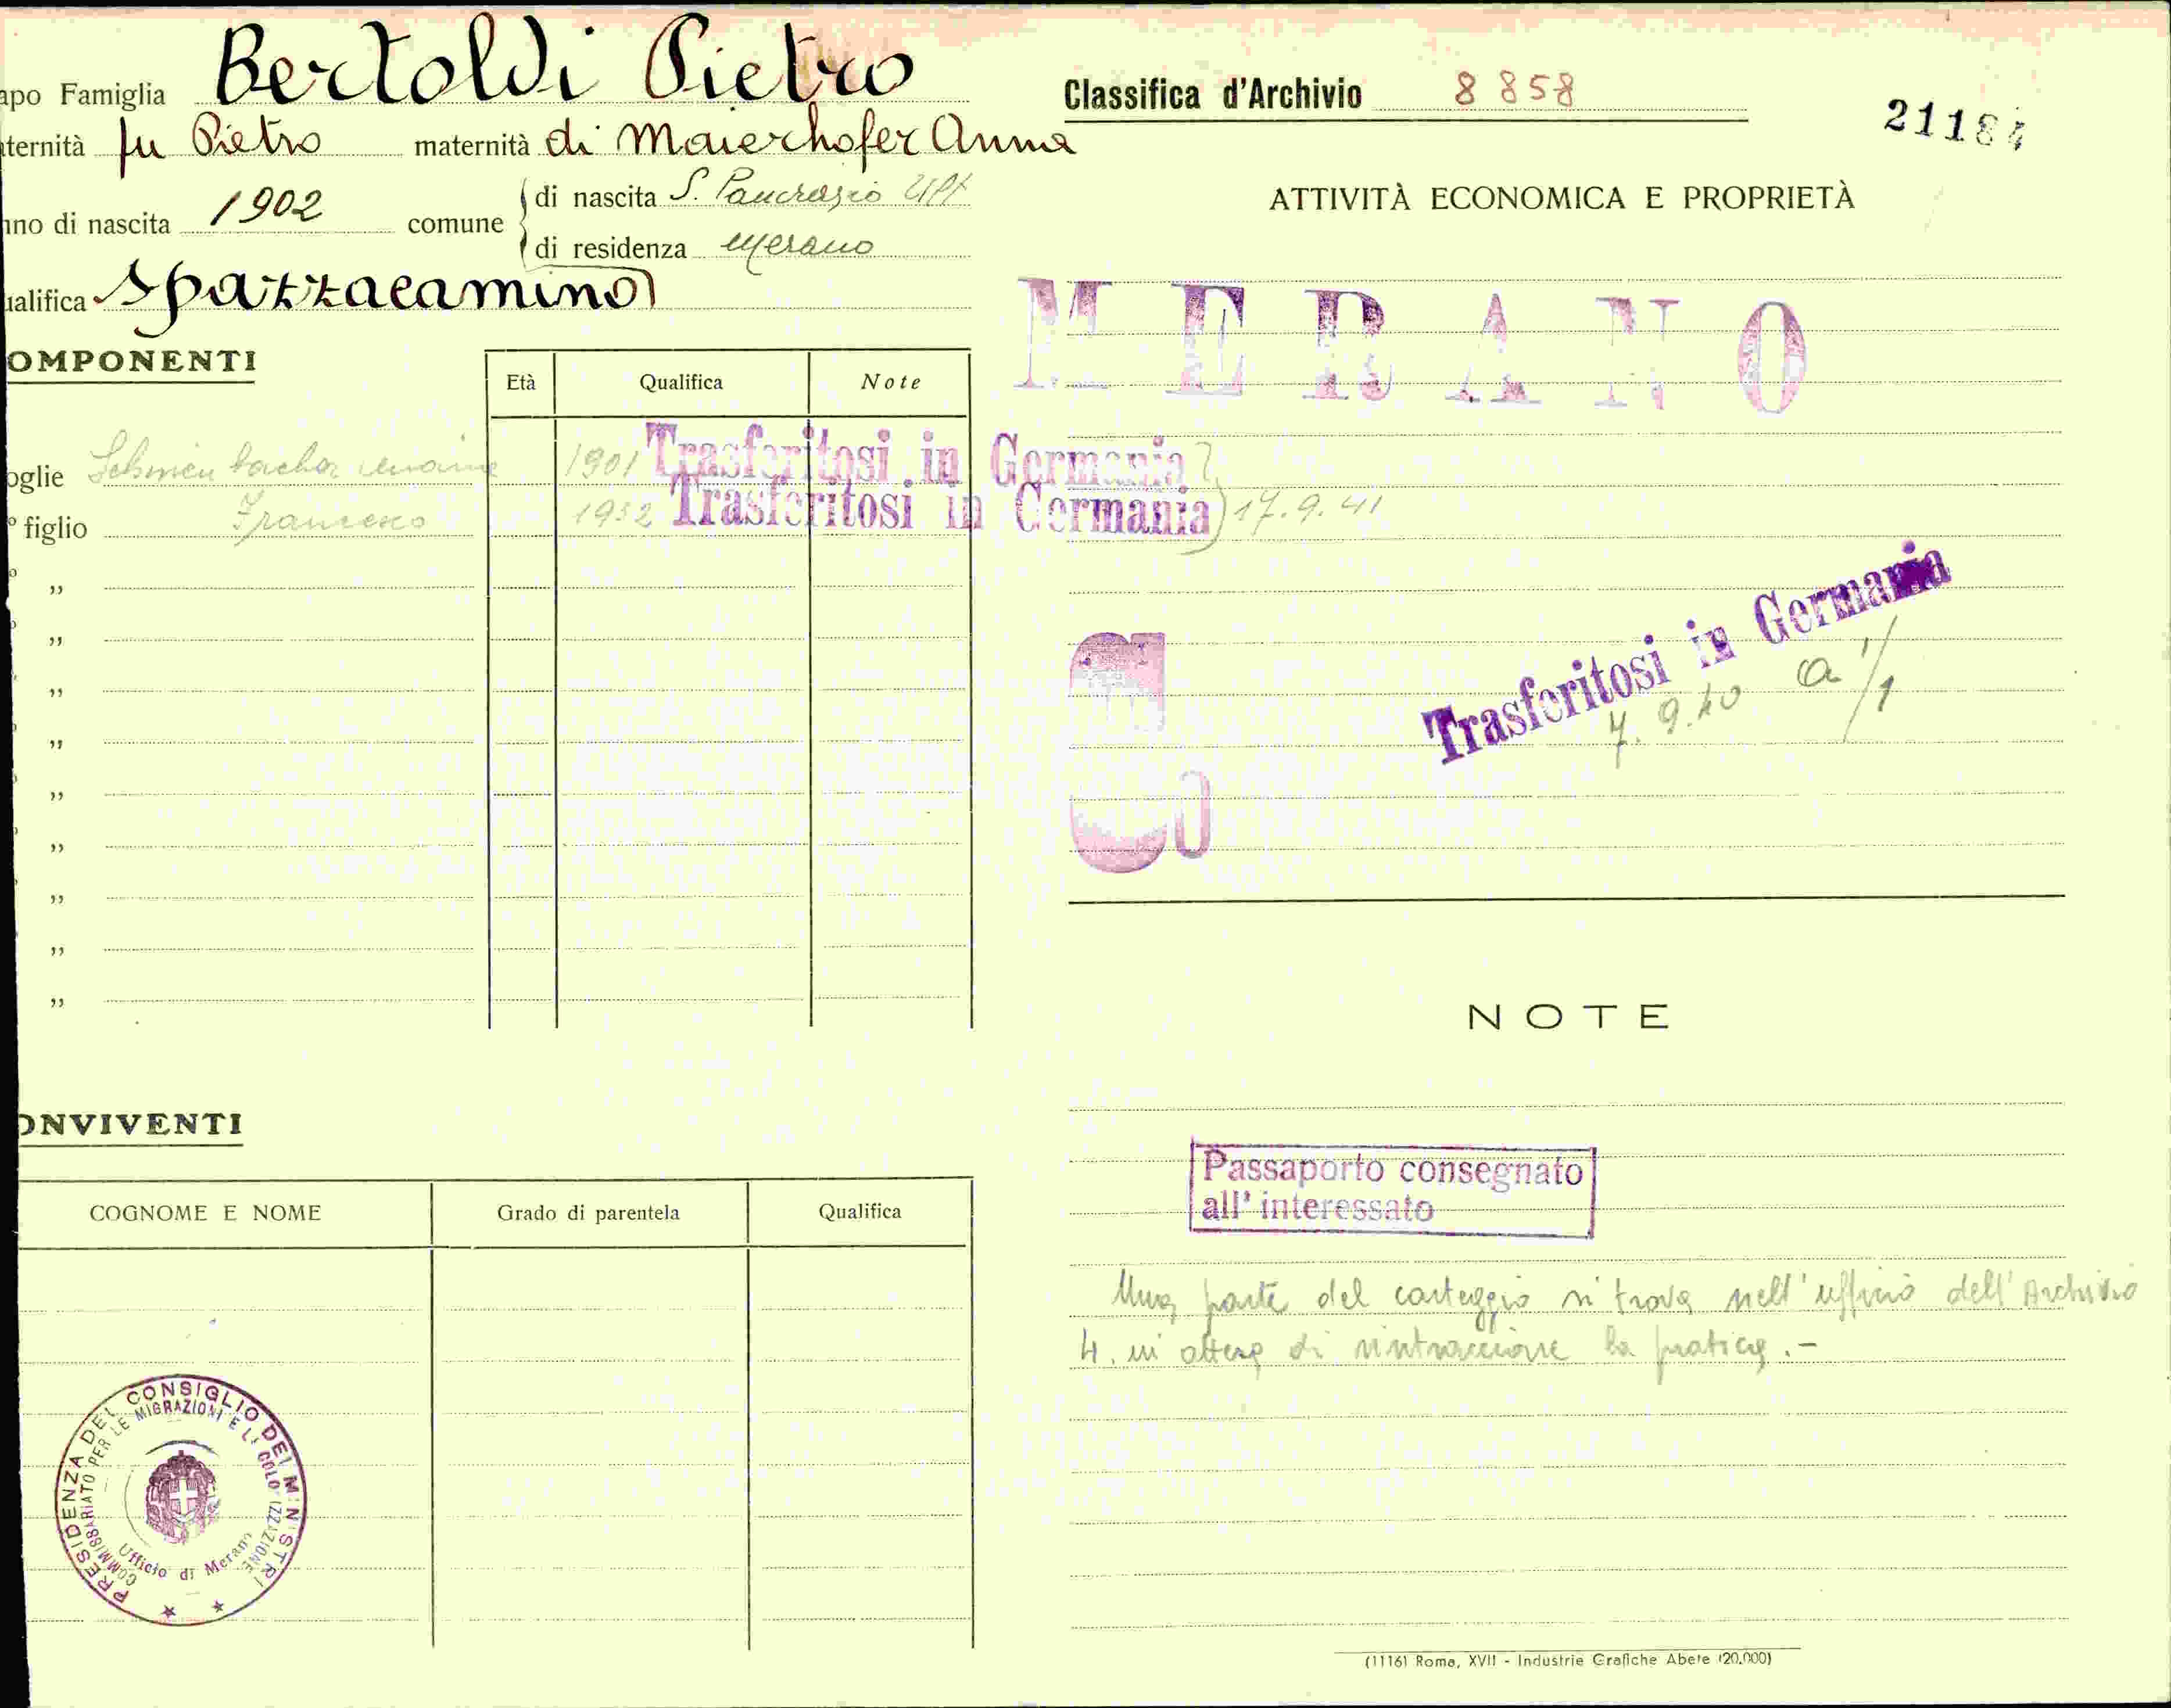 apo Famiglia Bertoldi Pietro
ternità fu Pietro maternità di Maierhofer Anna
nno di nascita 1902 comune di nascita S. Pancrazio Ult
di residenza Merano
ualifica spazzacamino
OMPONENTI
Età Qualifica Note
oglie 1901 Trasferitosi in Germania
° figlio Francesco 1932 Trasferitosi in Germania 17.9.41
„
„
„
„
„
„
„
„
„
ONVIVENTI
COGNOME E NOME Grado di parentela Qualifica
PRESIDENZA DEL CONSIGLIO DEI MINISTRI
COMMISSARIATO PER LE MIGRAZIONI E LA COLONIZZAZIONE
Ufficio di Merano
Classifica d'Archivio 8858
21184
ATTIVITÀ ECONOMICA E PROPRIETÀ
MERANO
Trasferitosi in Germania
7.9.40 a 1/1
NOTE
Passaporto consegnato
all' interessato
Una parte del carteggio si trova nell'ufficio dell'Archivio
4. in attesa di rintracciare la pratica.-
(1116) Roma, XVII - Industrie Grafiche Abete (20.000)